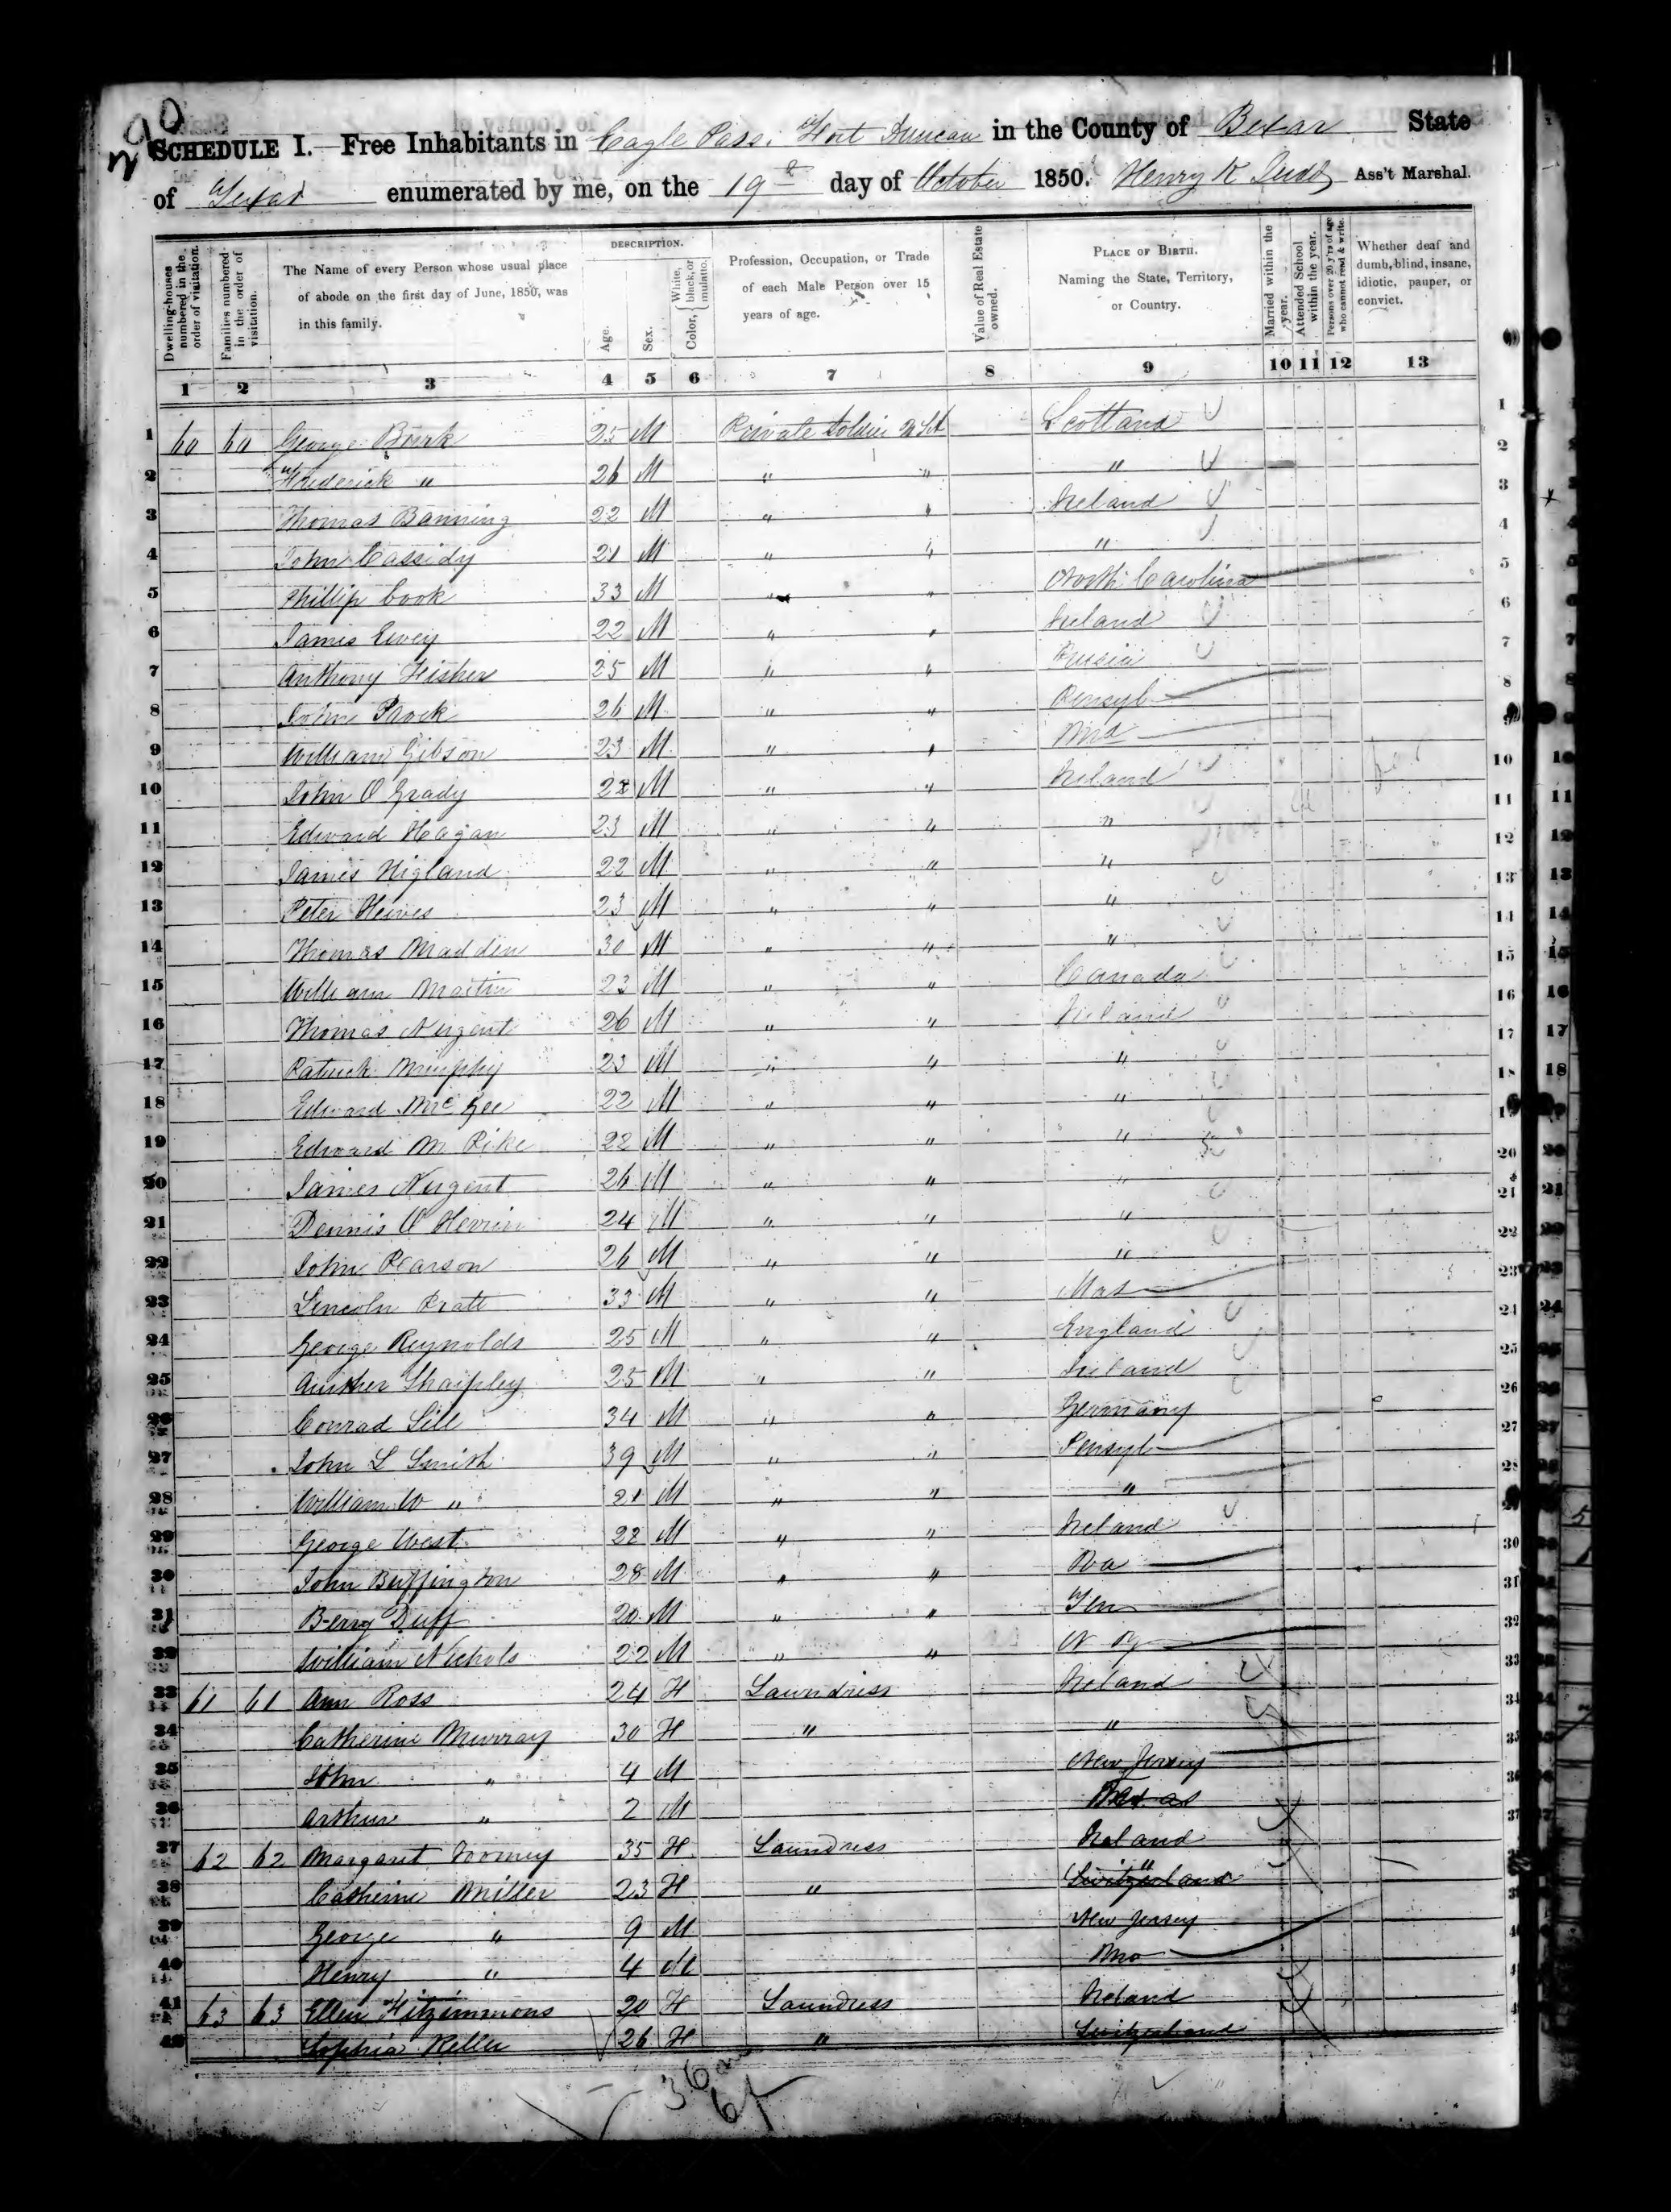 290
SCHEDULE I.—Free Inhabitants in Eagle Pass. Fort Duncan in the County of Bexar State
of Texas enumerated by me, on the 19th day of October 1850. Henry K Judd Ass't Marshal.
Dwelling-houses numbered in the order of visitation.
Families numbered in the order of visitation.
The Name of every Person whose usual place of abode on the first day of June, 1850, was in this family.
DESCRIPTION.
Age.
Sex.
Color, { White, black, or mulatto.
Profession, Occupation, or Trade of each Male Person over 15 years of age.
Value of Real Estate owned.
PLACE OF BIRTH. Naming the State, Territory, or Country.
Married within the year.
Attended School within the year.
Persons over 20 y'rs of age who cannot read & write.
Whether deaf and dumb, blind, insane, idiotic, pauper, or convict.
1 2 3 4 5 6 7 8 9 10 11 12 13
1 60 60 George Burk 25 M Private Soldier U S A Scotland 1
2 Frederick " 26 M " " " 2
3 Thomas Banning 22 M " " Ireland 3
4 John Cassidy 21 M " " " 4
5 Phillip Cook 33 M " " North Carolina 5
6 James Eivey 22 M " " Ireland 6
7 Anthony Fisher 25 M " " Prusia 7
8 John Frock 26 M " " Pensyl 8
9 William Gibson 23 M " " Md 9
10 John O Grady 22 M " " Ireland 10
11 Edward Hagan 23 M " " " 11
12 James Higland 22 M " " " 12
13 Peter Heives 23 M " " " 13
14 Thomas Madden 30 M " " " 14
15 William Martin 23 M " " Canada 15
16 Thomas Nugent 26 M " " Ireland 16
17 Patrick Murphy 23 M " " " 17
18 Edward McGee 22 M " " " 18
19 Edward M Pike 22 M " " " 19
20 James Nugent 26 M " " " 20
21 Dennis O Herrin 24 M " " " 21
22 John Pearson 26 M " " " 22
23 Lincoln Pratt 33 M " " Mas 23
24 George Reynolds 25 M " " England 24
25 Shaipley 25 M " " Ireland 25
26 Conrad Sill 34 M " " Germany 26
27 John L Smith 39 M " " Pensyl 27
28 William W " 21 M " " " 28
29 George West 22 M " " Ireland 29
30 John Buffington 28 M " " 30
31 Berry Duff 20 M " " Ten 31
32 William Nichols 22 M " " N Y 32
33 61 61 Ann Ross 24 F Laundress Ireland 33
34 Catherine Murray 30 F " " 34
35 John " 4 M New Jersey 35
36 Arthur " 2 M Texas 36
37 62 62 Margaret Toomey 35 F Laundress Ireland 37
38 Catherine Miller 23 F " Switzerland "
39 George " 9 M New Jersey
40 Henry " 4 M Mo
41 63 63 Ellen Fitzimmons 20 F Laundress Ireland
42 Sophia Keller 26 F " Switzerland
36
6